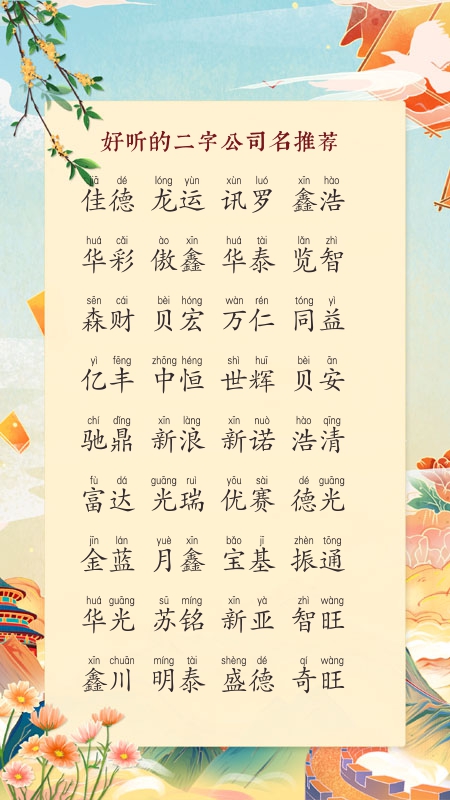 好听的二字公司名推荐
jiā dé lóng yùn xùn luó xīn hào
佳德 龙运 讯罗 鑫浩
huá cǎi ào xīn huá tài lǎn zhì
华彩 傲鑫 华泰 览智
sēn cái bèi hóng wàn rén tóng yì
森财 贝宏 万仁 同益
yì fēng zhōng héng shì huī bèi ān
亿丰 中恒 世辉 贝安
chí dǐng xīn làng xīn nuò hào qīng
驰鼎 新浪 新诺 浩清
fù dá guāng ruì yōu sài dé guāng
富达 光瑞 优赛 德光
jīn lán yuè xīn bǎo jī zhèn tōng
金蓝 月鑫 宝基 振通
huá guāng sū míng xīn yà zhì wàng
华光 苏铭 新亚 智旺
xīn chuān míng tài shèng dé qí wàng
鑫川 明泰 盛德 奇旺